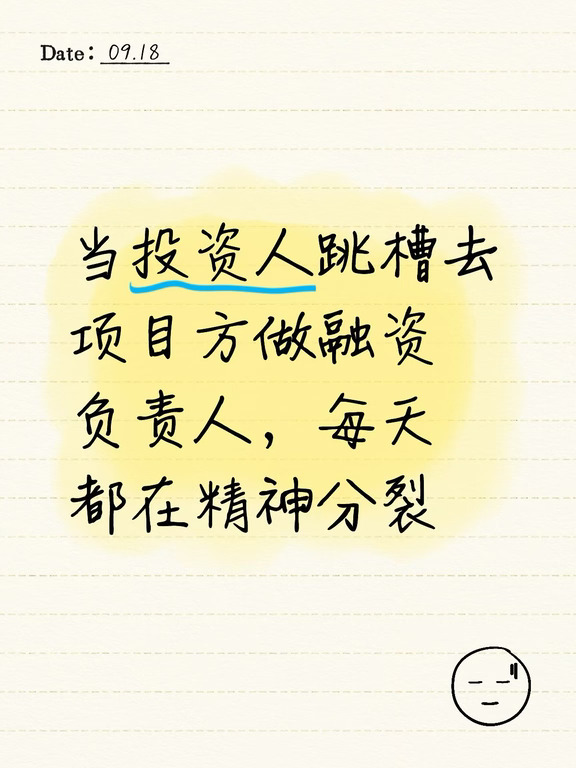 Date: 09.18
当投资人跳槽去
项目方做融资
负责人，每天
都在精神分裂